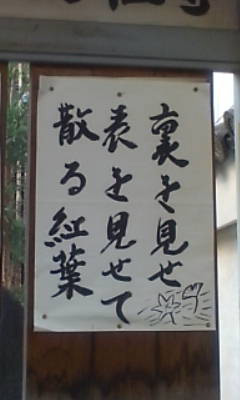 裏を見せ
表を見せて
散る紅葉